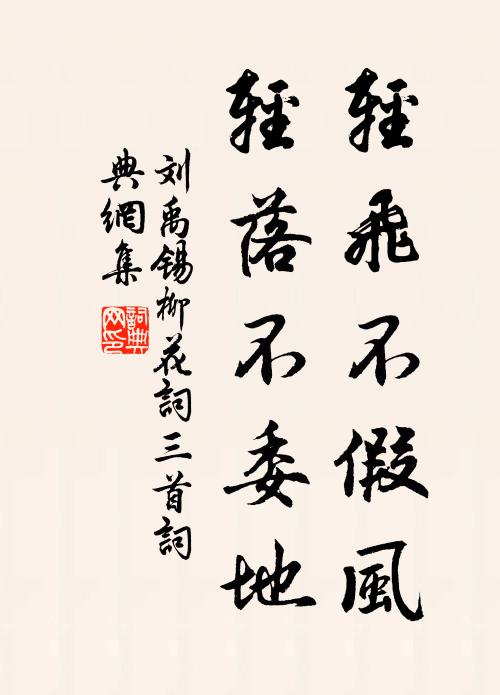 輕飛不假風
輕落不委地
刘禹锡柳花詞三首詞
典網集
詞典网印